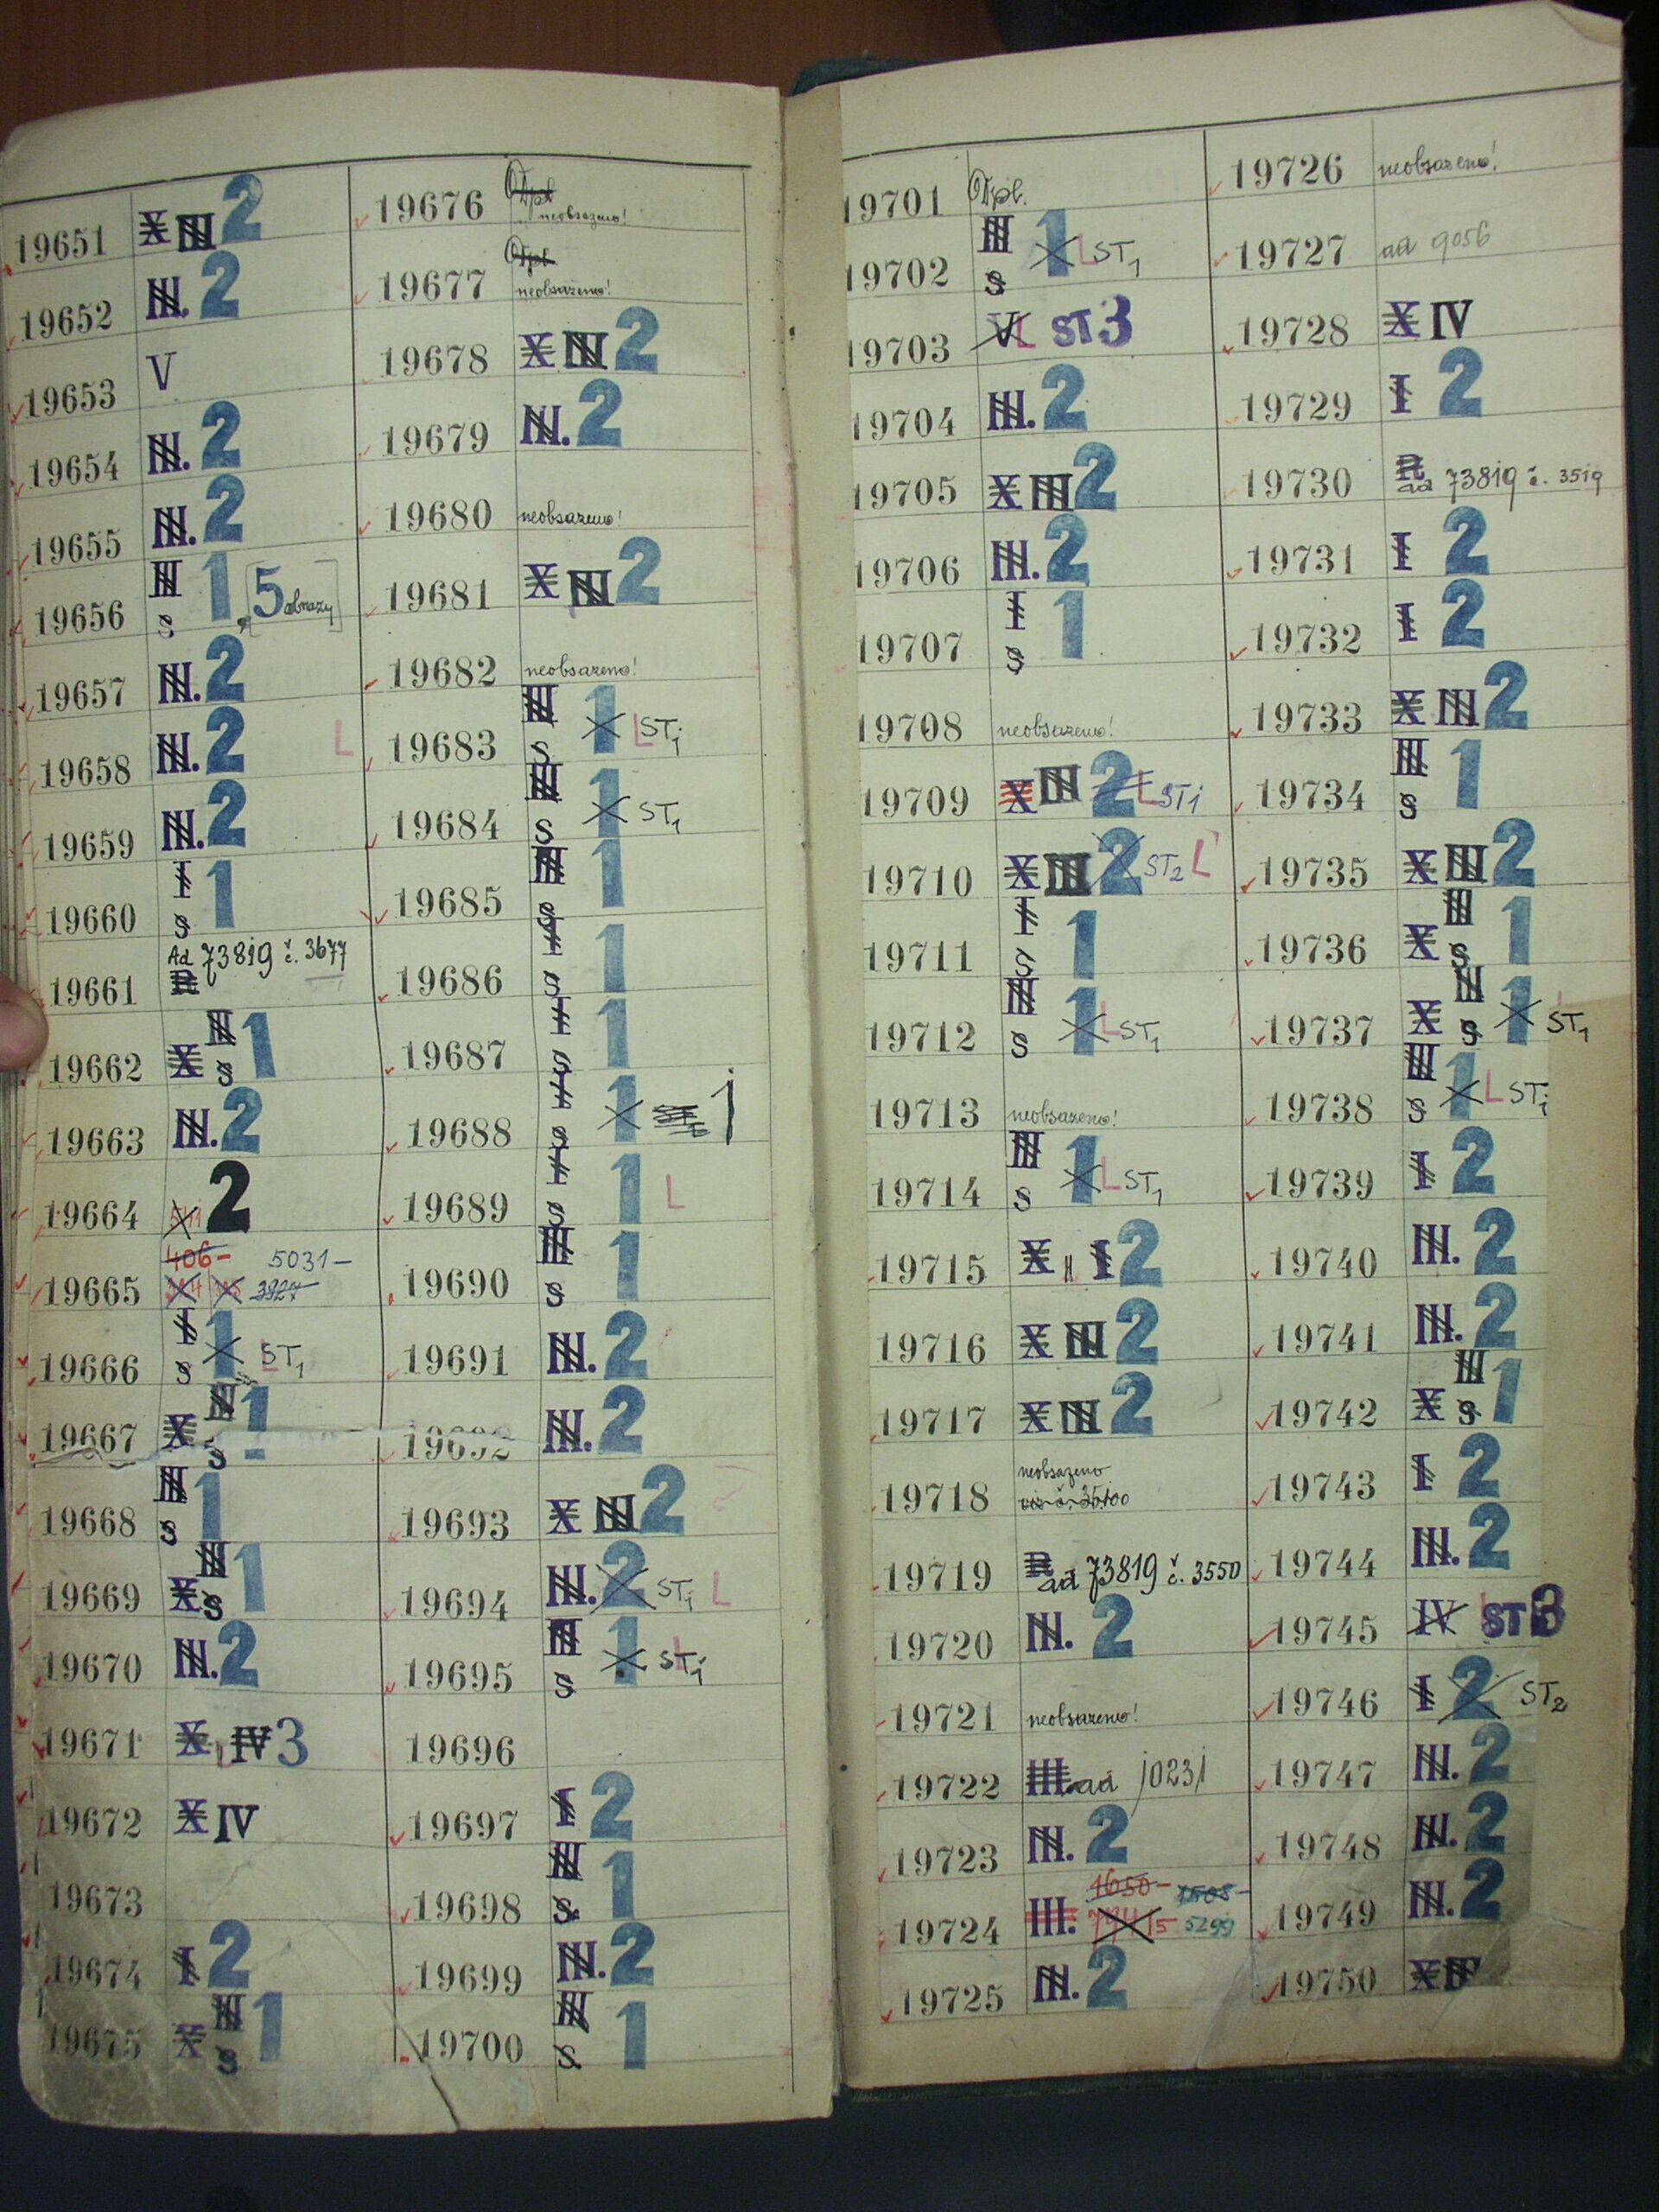 19651 X III 2
19652 III. 2
19653 V
19654 III. 2
19655 III. 2
19656 III S 1, [5 obrazy]
19657 III. 2
19658 III. 2 L
19659 III. 2
19660 I S 1
19661 Ad 73819 č. 3677
R
19662 X III S 1
19663 III. 2
19664 2
19665 406- 5031-
3927
19666 I S 1 L ST1
19667 X III S 1
19668 III S 1
19669 X III S 1
19670 III. 2
19671 X IV 3
19672 X IV
19673
19674 I 2
19675 X III S 1
19676 Dpl.
neobsazeno!
19677 Dpl.
neobsazeno!
19678 X III 2
19679 III. 2
19680 neobsazeno!
19681 X III 2
19682 neobsazeno!
19683 III S 1 L ST1
19684 III S 1 ST1
19685 III S 1
19686 I S 1
19687 I S 1
19688 I S 1 1
19689 I S 1 L
19690 III S 1
19691 III. 2
19692 III. 2
19693 X III 2
19694 III. 2 ST1 L
19695 III S 1 L ST1
19696
19697 I 2
19698 III S 1
19699 III. 2
19700 III S 1
19701 Dpl.
19702 III S 1 L ST1
19703 V L ST 3
19704 III. 2
19705 X III 2
19706 III. 2
19707 I S 1
19708 neobsazeno!
19709 X III 2 L ST1
19710 X III 2 ST2 L
19711 I S 1
19712 III S 1 L ST1
19713 neobsazeno!
19714 III S 1 L ST1
19715 X II I 2
19716 X III 2
19717 X III 2
19718 neobsazeno
viz č. 35100
19719 R
ad 73819 č. 3550
19720 III. 2
19721 neobsazeno!
19722 III. ad 10231
19723 III. 2
19724 III. 1650-
5299
19725 III. 2
19726 neobsazeno!
19727 ad 9056
19728 X IV
19729 I 2
19730 R
ad 73819 č. 3519
19731 I 2
19732 I 2
19733 X III 2
19734 III S 1
19735 X III 2
19736 X III S 1
19737 X III S 1 L ST1
19738 III S 1 L ST1
19739 I 2
19740 III. 2
19741 III. 2
19742 X III S 1
19743 I 2
19744 III. 2
19745 IV L ST 3
19746 I 2 ST2
19747 III. 2
19748 III. 2
19749 III. 2
19750 X IV